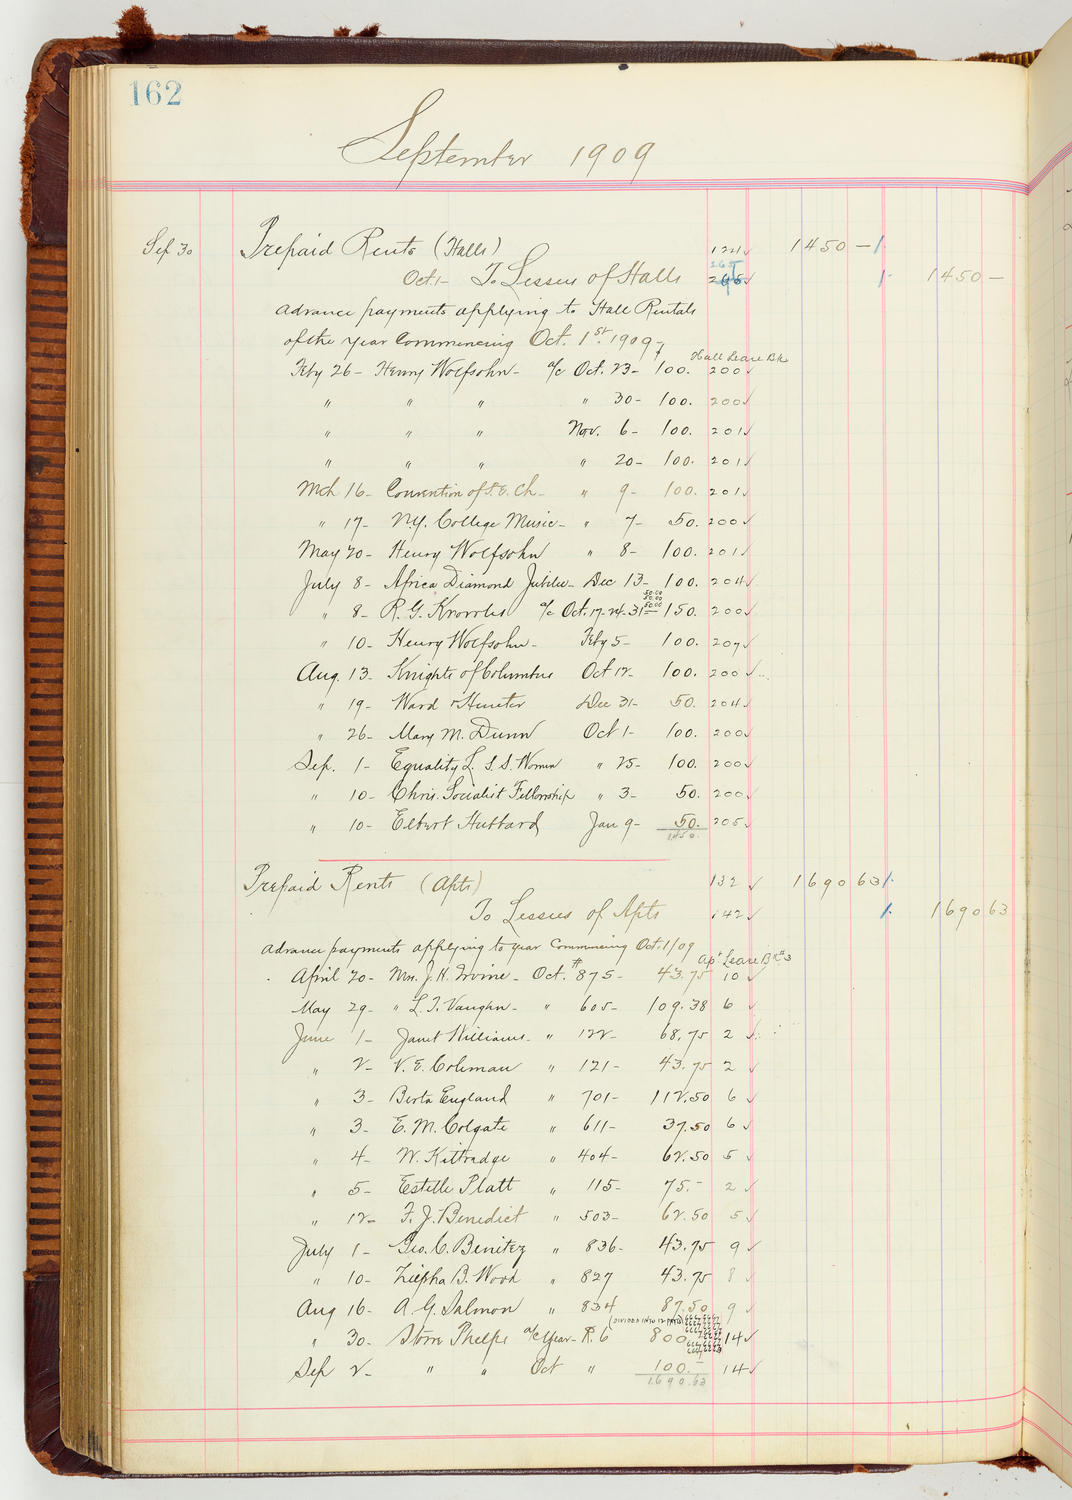 162
September 1909
Sep 30 Prepaid Rents (Halls) 124 ✓ 1450 —
Oct. 1 - To Lessees of Halls 265 ✓ 1450 —
advance payments applying to Hall Rentals
of the year commencing Oct. 1st. 1909,
Hall Lease Bk
Feby 26 - Henry Wolfsohn - a/c Oct. 23 - 100. 200 ✓
" " " " 30 - 100. 200 ✓
" " " Nov. 6 - 100. 201 ✓
" " " " 20 - 100. 201 ✓
Mch 16 - Convention of P. E. Ch. " 9 - 100. 201 ✓
" 17 - N.Y. College Music - " 7 - 50. 200 ✓
May 20 - Henry Wolfsohn " 8 - 100. 201 ✓
July 8 - Africa Diamond Jubilee - Dec 13 - 100. 204 ✓
50.00
50.00
" 8 - R. G. Knowles a/c Oct. 17 - 24. 31 50.00 150. 200 ✓
" 10 - Henry Wolfsohn - Feby 5 - 100. 207 ✓
Aug. 13 - Knights of Columbus Oct 12 - 100. 200 ✓
" 19 - Ward & Hunter Dec 31 - 50. 204 ✓
" 26 - Mary M. Dunn Oct 1 - 100. 200 ✓
Sep. 1 - Equality L. S. S. Women " 25 - 100. 200 ✓
" 10 - Chris. Socialist Fellowship " 3 - 50. 200 ✓
" 10 - Elbert Hubbard Jan 9 - 50. 205 ✓
1450.
Prepaid Rents (Apts) 132 ✓ 1690 63
To Lessees of Apts 142 ✓ 1690 63
advance payments applying to year commencing Oct. 1/09
Apt Lease Bk #3
April 20 - Mrs. J. H. Irvine - Oct. #875 - 43.75 10 ✓
May 29 - " L. T. Vaughn - " 605 - 109.38 6 ✓
June 1 - Janet Williams - " 122 - 68.75 2 ✓
" 2 - V. E. Coleman " 121 - 43.75 2 ✓
" 3 - Berta England " 701 - 112.50 6 ✓
" 3 - E. M. Colgate " 611 - 37.50 6 ✓
" 4 - W. Kittredge " 404 - 62.50 5 ✓
" 5 - Estelle Platt " 115 - 75. - 2 ✓
" 12 - F. J. Benedict " 503 - 62.50 5 ✓
July 1 - Geo. C. Benitez " 836 - 43.75 9 ✓
" 10 - Ziepha B. Wood " 827 43.75 8 ✓
Aug 16 - A. G. Salmon " 834 87.50 9 ✓
(DIVIDED INTO 12 PARTS)
" 30 - Storn Phelps a/c Year - R. 6 800. 14 ✓
Sep 2 - " " Oct " 100. - 14 ✓
1690.63